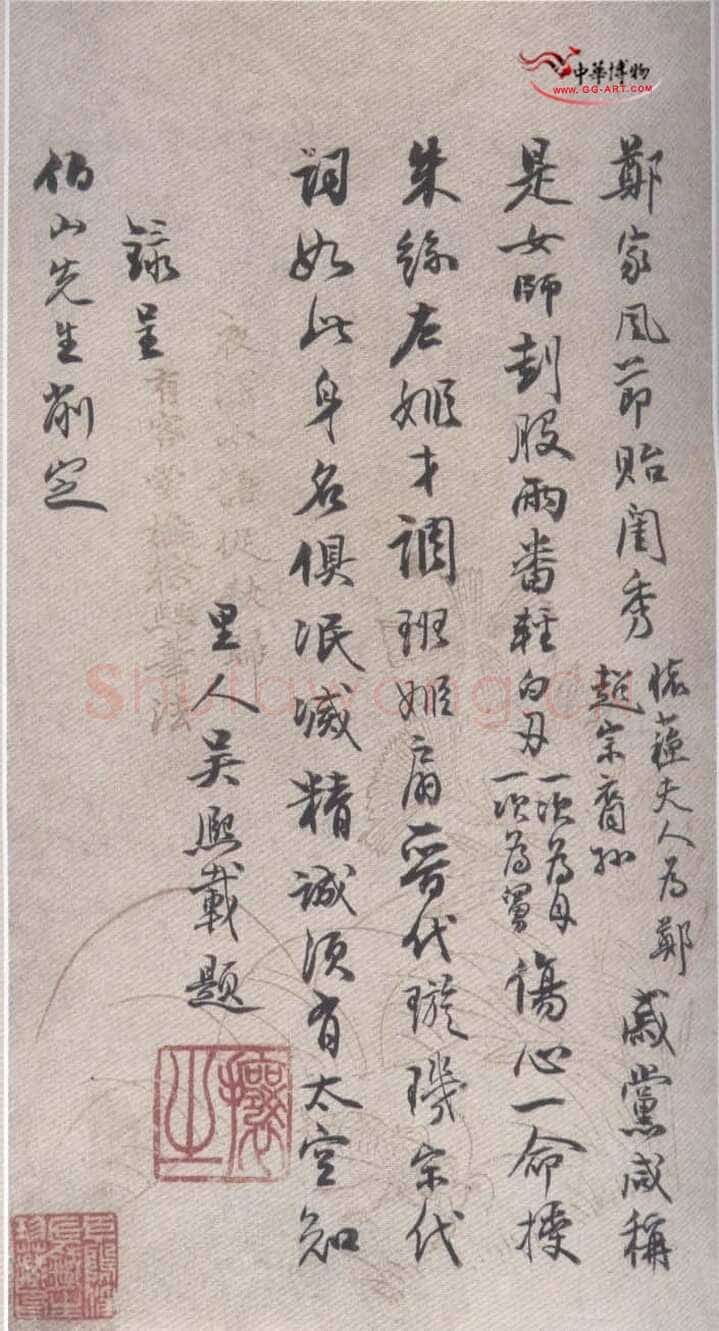 中華博物
WWW.GG-ART.COM
鄭家風節貽閨秀
蘊夫人為鄭
超宗裔孫
戚黨咸稱
是女師刲股兩番輕白刃
一次為母
一次為舅
傷心一命
朱絲左姬才調班姬晉代璇璣宋代
詞如此身名俱泯滅精誠須有太空知
里人吳熙載題
錄呈
伯山先生削定
攘之
Shufawang.cn